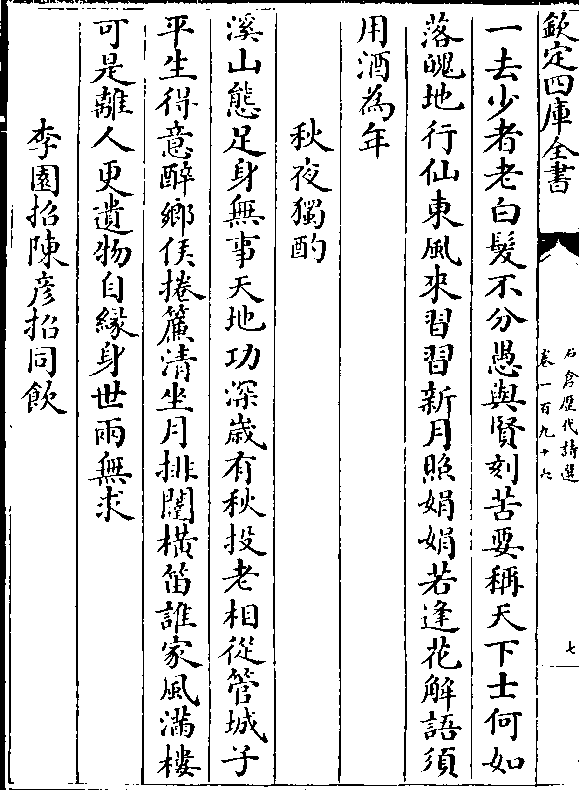 欽定四庫全書
石倉歷代詩選
卷一百九十六
七
一去少者老白髮不分愚與賢刻苦要稱天下士何如
落魄地行仙東風來習習新月照娟娟若逢花解語須
用酒為年
秋夜獨酌
溪山態足身無事天地功深歲有秋投老相從管城子
平生得意醉鄉侯捲簾清坐月排闥橫笛誰家風滿樓
可是離人更遺物自緣身世兩無求
李園招陳彥招同飲